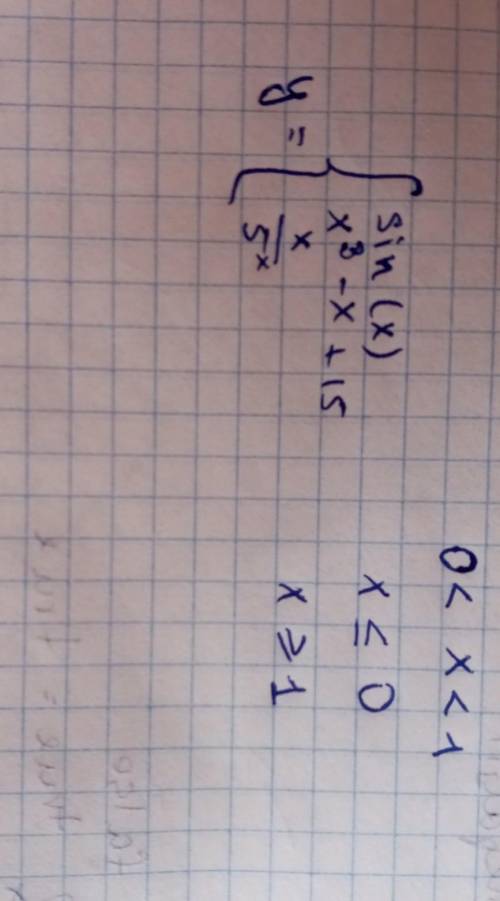 y = { sin(x) 0 < x < 1
x³ - x + 15 x ≤ 0
x/5ˣ x ≥ 1